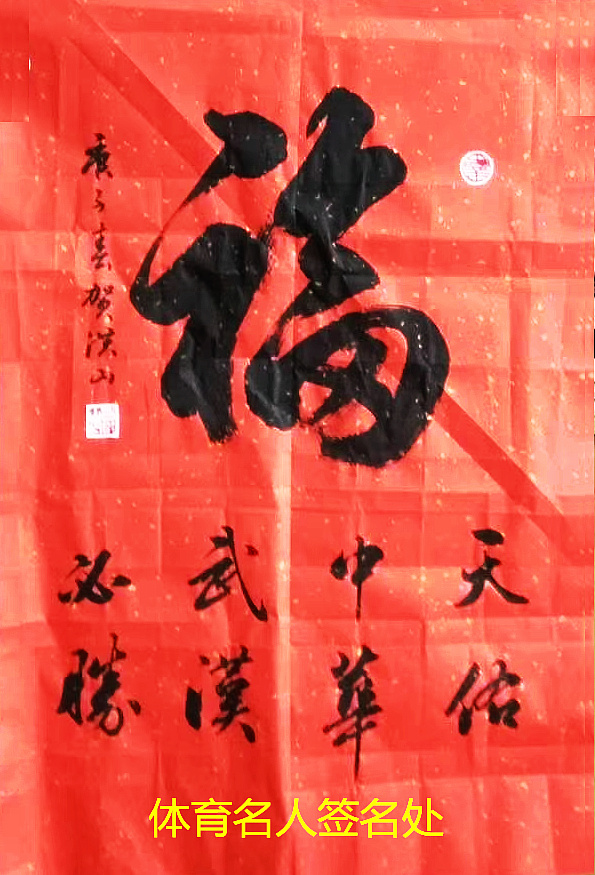 福
天佑
中華
武漢
必勝
庚子春賀洪山
体育名人签名处